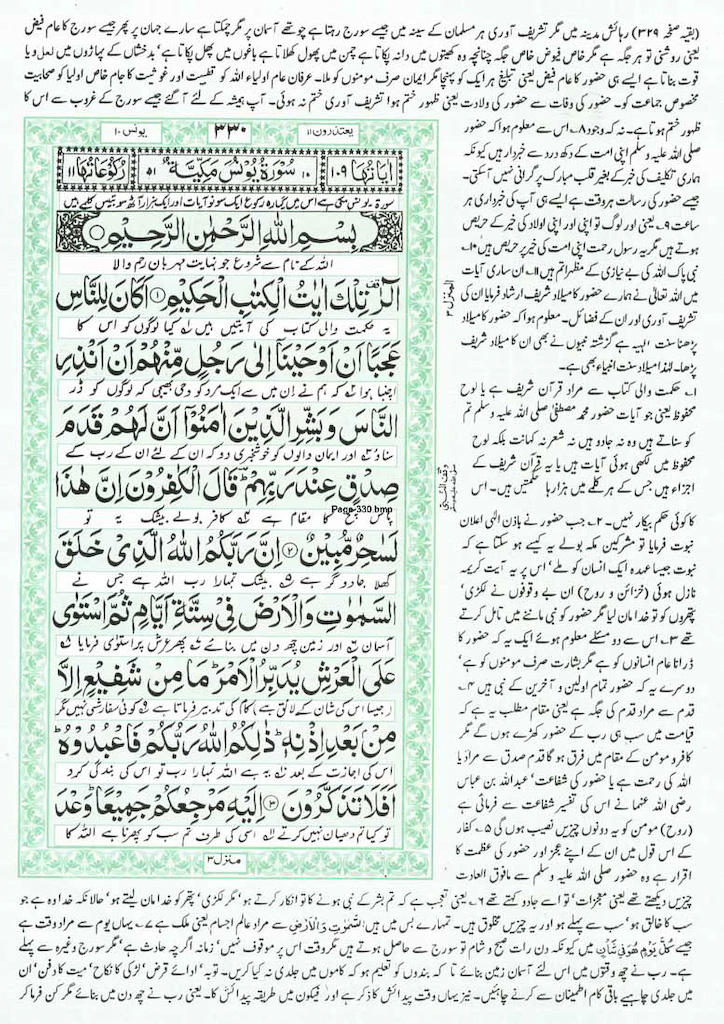 (بقیہ صفحہ ۳۲۹) رہائش مدینہ میں مگر تشریف آوری ہر مسلمان کے سینہ میں جیسے سورج رہتا ہے چوتھے آسمان پر مگر چمکتا ہے سارے جہان پر پھر جیسے سورج کا عام فیض
یعنی روشنی تو ہر جگہ ہے مگر خاص فیوض خاص جگہ چنانچہ وہ کھیتوں میں دانہ پکاتا ہے چمن میں پھول کھلاتا ہے باغوں میں پھل پکاتا ہے' بدخشاں کے پہاڑوں میں لعل و یا
قوت بناتا ہے ایسے ہی حضور کا عام فیض یعنی تبلیغ ہر ایک کو پہنچا مگر ایمان صرف مومنوں کو ملا۔ عرفان عام اولیاء اللہ کو قطبیت اور غوثیت کا جام خاص اولیا کو صحابیت
مخصوص جماعت کو۔ حضور کی وفات سے حضور کی ولادت یعنی ظہور ختم ہوا تشریف آوری ختم نہ ہوئی۔ آپ ہمیشہ کے لئے آگئے جیسے سورج کے غروب سے اس کا
ظہور ختم ہوتا ہے۔ نہ کہ وجود ۸۔ اس سے معلوم ہوا کہ حضور
صلی اللہ علیہ وسلم اپنی امت کے دکھ درد سے خبردار ہیں کیونکہ
ہماری تکلیف کی خبر کے بغیر قلب مبارک پر گرانی نہیں آسکتی۔
جیسے حضور کی رسالت ہر وقت ہے ایسے ہی آپ کی خبرداری ہر
ساعت ۹۔ یعنی اور لوگ تو اپنی اور اپنی اولاد کی خیر کے حریص
ہوتے ہیں مگر یہ رسول رحمت اپنی امت کی خیر پر حریص ہیں ۱۰۔
نبی پاک اللہ کی بے نیازی کے مظہر اتم ہیں ۱۱۔ ان ساری آیات
میں اللہ تعالیٰ نے ہمارے حضور کا میلاد شریف ارشاد فرمایا ان کی
تشریف آوری اور ان کے فضائل۔ معلوم ہوا کہ حضور کا میلاد
پڑھنا سنت الہیہ ہے گزشتہ نبیوں نے بھی ان کا میلاد شریف
پڑھا۔ لہذا میلاد سنت انبیاء بھی ہے۔
۱۔ حکمت والی کتاب سے مراد قرآن شریف ہے یا لوح
محفوظ یعنی جو آیات حضور محمد مصطفیٰ صلی اللہ علیہ وسلم تم
کو سناتے ہیں وہ نہ جادو ہیں نہ شعر نہ کہانت بلکہ لوح
محفوظ میں لکھی ہوئی آیات ہیں یا یہ قرآن شریف کے
اجزاء ہیں جس کے ہر کلمے میں ہزارہا حکمتیں ہیں۔ اس
کا کوئی حکم بیکار نہیں۔ ۲۔ جب حضور نے باذن الہی اعلان
نبوت فرمایا تو مشرکین مکہ بولے یہ کیسے ہو سکتا ہے کہ
نبوت جیسا عہدہ ایک انسان کو ملے' اس پر یہ آیت کریمہ
نازل ہوئی (خزائن و روح) ان بے وقوفوں نے لکڑی'
پتھروں کو تو خدا مان لیا مگر حضور کو نبی ماننے میں تامل کرتے
تھے ۳۔ اس سے دو مسئلے معلوم ہوئے ایک یہ کہ حضور کا
ڈرانا عام انسانوں کو ہے مگر بشارت صرف مومنوں کو ہے'
دوسرے یہ کہ حضور تمام اولین و آخرین کے نبی ہیں ۴۔
قدم سے مراد قدم کی جگہ ہے یعنی مقام مطلب یہ ہے کہ
قیامت میں سب ہی رب کے حضور کھڑے ہوں گے مگر
کافر و مومن کے مقام میں فرق ہو گا قدم صدق سے مراد یا
اللہ کی رحمت ہے یا حضور کی شفاعت' عبداللہ بن عباس
رضی اللہ عنہما نے اس کی تفسیر شفاعت سے فرمائی ہے
(روح) مومن کو یہ دونوں چیزیں نصیب ہوں گی ۵۔ کفار
کے اس قول میں ان کے اپنے عجز اور حضور کی عظمت کا
اقرار ہے وہ حضور صلی اللہ علیہ وسلم سے مافوق العادت
یونس ۱۰
۳۳۰
یعتذرون ۱۱
اٰیَاتُهَا ۱۰۹
۱۰ سُوْرَةُ يُوْنُسَ مَكِّيَّةٌ ۵۱
رُكُوْعَاتُهَا ۱۱
سورۃ یونس مکی ہے اس میں گیارہ رکوع ایک سو نو آیات اور ایک ہزار آٹھ سو بتیس کلمے ہیں
بِسْمِ اللّٰهِ الرَّحْمٰنِ الرَّحِيْمِ
اللہ کے نام سے شروع جو نہایت مہربان رحم والا
الٓرٰ تِلْكَ اٰيٰتُ الْكِتٰبِ الْحَكِيْمِ ۱ اَكَانَ لِلنَّاسِ
یہ حکمت والی کتاب کی آیتیں ہیں کیا لوگوں کو اس کا
عَجَبًا اَنْ اَوْحَيْنَاۤ اِلٰى رَجُلٍ مِّنْهُمْ اَنْ اَنْذِرِ
اچنبا ہوا کہ ہم نے ان میں سے ایک مرد کو وحی بھیجی کہ لوگوں کو ڈر
النَّاسَ وَبَشِّرِ الَّذِيْنَ اٰمَنُوْۤا اَنَّ لَهُمْ قَدَمَ
سناؤ اور ایمان والوں کو خوشخبری دو کہ ان کے لئے ان کے رب کے
صِدْقٍ عِنْدَ رَبِّهِمْ قَالَ الْكٰفِرُوْنَ اِنَّ هٰذَا
پاس سچ کا مقام ہے کافر بولے بیشک یہ تو
Page-330.bmp
لَسٰحِرٌ مُّبِيْنٌ ۲ اِنَّ رَبَّكُمُ اللّٰهُ الَّذِيْ خَلَقَ
کھلا جادوگر ہے بیشک تمہارا رب اللہ ہے جس نے
السَّمٰوٰتِ وَالْاَرْضَ فِيْ سِتَّةِ اَيَّامٍ ثُمَّ اسْتَوٰى
آسمان اور زمین چھ دن میں بنائے پھر عرش پر استوٰی فرمایا
عَلَى الْعَرْشِ يُدَبِّرُ الْاَمْرَ مَا مِنْ شَفِيْعٍ اِلَّا
جیسا اس کی شان کے لائق ہے کام کی تدبیر فرماتا ہے کوئی سفارشی نہیں مگر
مِنْۢ بَعْدِ اِذْنِهٖ ذٰلِكُمُ اللّٰهُ رَبُّكُمْ فَاعْبُدُوْهُ
اس کی اجازت کے بعد یہ ہے اللہ تمہارا رب تو اس کی بندگی کرو
اَفَلَا تَذَكَّرُوْنَ ۳ اِلَيْهِ مَرْجِعُكُمْ جَمِيْعًا وَعْدَ
تو کیا تم دھیان نہیں کرتے اسی کی طرف تم سب کو پھرنا ہے اللہ کا
منزل ۳
المنزل ۳
چیزیں دیکھتے تھے یعنی معجزات' تو اسے جادو کہتے تھے ۶۔ یعنی تعجب ہے کہ تم بشر کے نبی ہونے کا تو انکار کرتے ہو' مگر لکڑی' پتھر کو خدا مان لیتے ہو' حالانکہ خدا وہ ہے جو
سب کا خالق ہو' سب سے پہلے ہو اور یہ چیزیں مخلوق ہیں۔ تمہارے بس میں ہیں السَّمٰوٰتِ وَالْاَرْضَ سے مراد عالم اجسام یعنی ملک ہے ۷۔ یہاں یوم سے مراد وقت ہے
جیسے كُلَّ يَوْمٍ هُوَ فِيْ شَاْنٍ میں کیونکہ دن رات صبح و شام تو سورج سے حاصل ہوتے ہیں مگر وقت اس پر موقوف نہیں' زمانہ اگرچہ حادث ہے' مگر سورج وغیرہ سے پہلے
ہے۔ رب نے چھ وقتوں میں اس لئے آسمان زمین بنائے تا کہ بندوں کو تعلیم ہو کہ کاموں میں جلدی نہ کیا کریں۔ توبہ' ادائے قرض' لڑکی کا نکاح' میت کا دفن' ان
میں جلدی چاہیے باقی کام اطمینان سے کرنے چاہئیں۔ نیز یہاں وقت پیدائش کا ذکر ہے اور فیکون میں طریقہ پیدائش کا۔ یعنی رب نے چھ دن میں بنائے مگر کن فرما کر